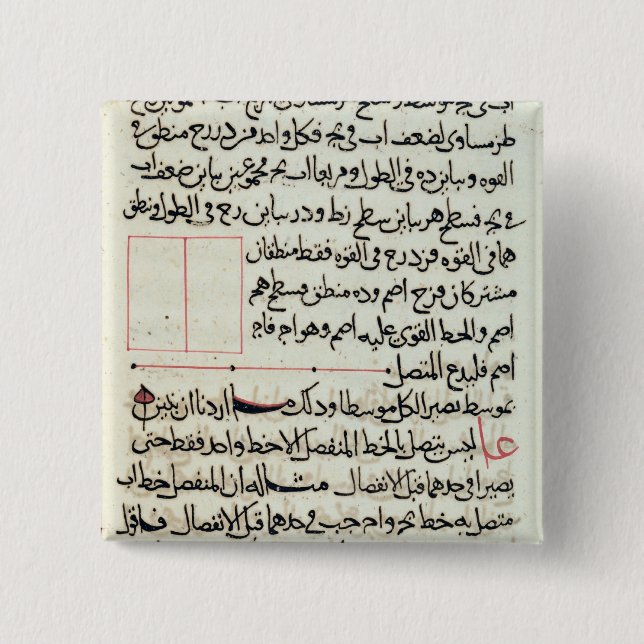 طر مساوى لضعف اب فى بج فكل واحد من د ز رح منطق فى
القوه ومباين ده فى الطول ومربعا اب بج مجموعين يباين ضعف اب
فى بج فسطح هر يباين سطح زط و در يباين رح فى الطول ومنطق
هما فى القوه فز د رح فى القوه فقط منطقان
مشتركان فزح اصم وده منطق فسطح هح
اصم والخط القوى عليه اصم وهو اج فاج
اصم فليدع المتصل
بموسط يصير الكل موسطا وذلك ما اردنا ان نبين
عا ليس يتصل بالخط المنفصل الا خط واحد فقط حتى
يصيرا فى حدهما قبل الانفصال مثاله ان المنفصل خط اب
متصل به خط بج واج جب فى حدهما قبل الانفصال فاقول